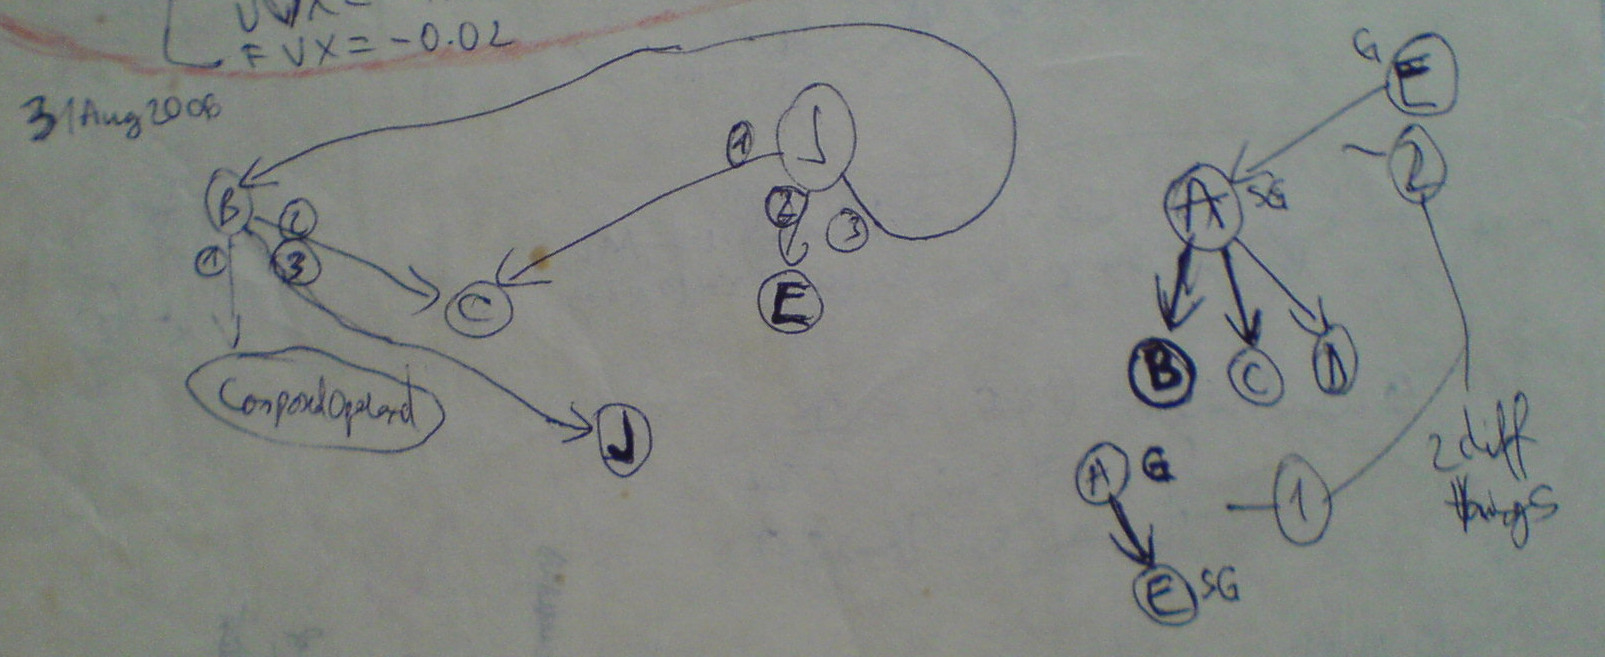 F VX = -0.02
31Aug2006
B
1
2
3
C
ComposedOperand
J
J
1
2
3
E
G
E
2
A
SG
B
C
D
A
G
E
SG
1
2 diff
things